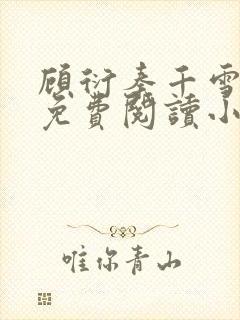 顾衍秦千雪
免費閱讀小
唯你青山